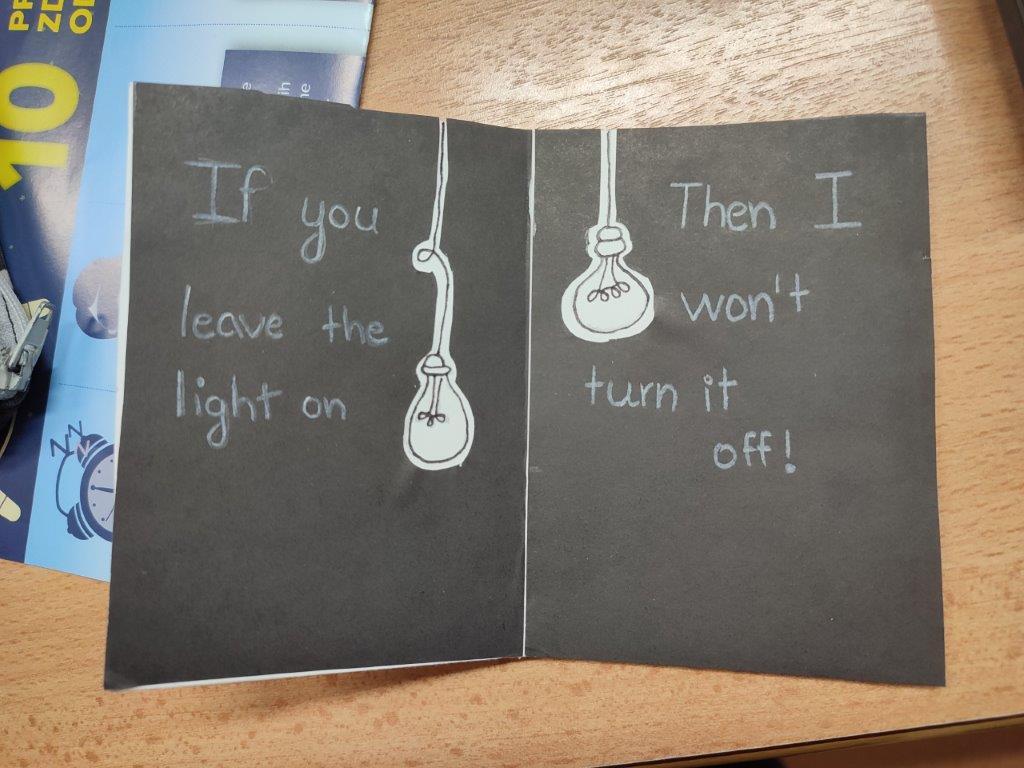 10
If you
leave the
light on
Then I
won't
turn it
off!